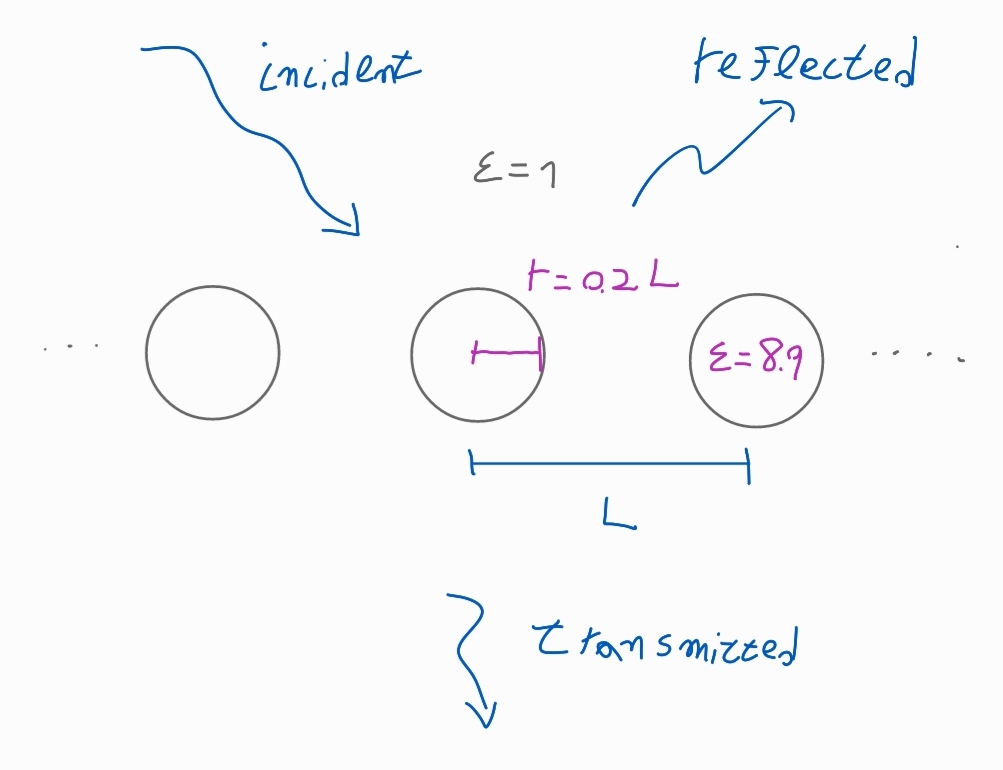 incident
reflected
ε=1
r=0.2L
ε=8.9
L
transmitted